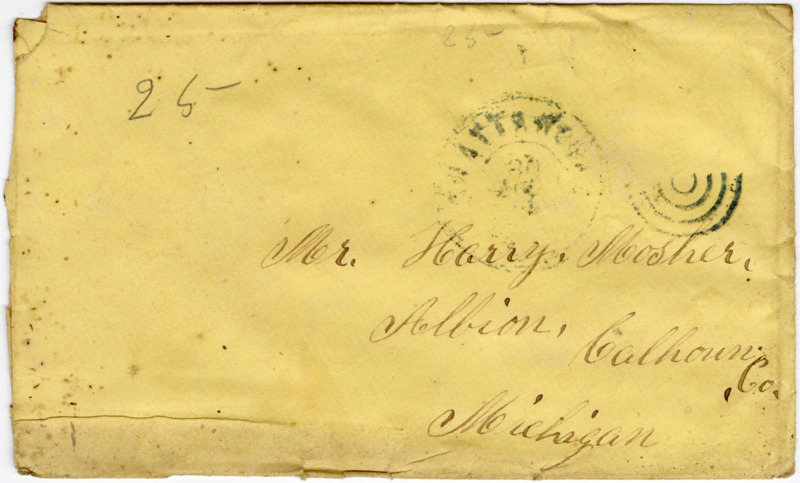 25-
25-
CHATTANOOGA
Mr. Harry. Mosher,
Albion,
Calhoun,
Co.
Michigan